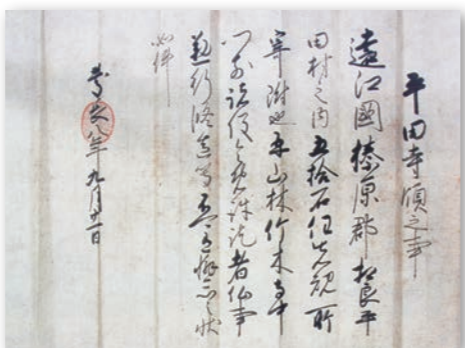 平田寺領之事
遠江國榛原郡相良平
田村之内五拾石任先規所
寄附也并山林竹木寺中
門前諸役令免許訖者仏事
勤行修造等不可有懈怠之状
如件
慶長八年九月 一日